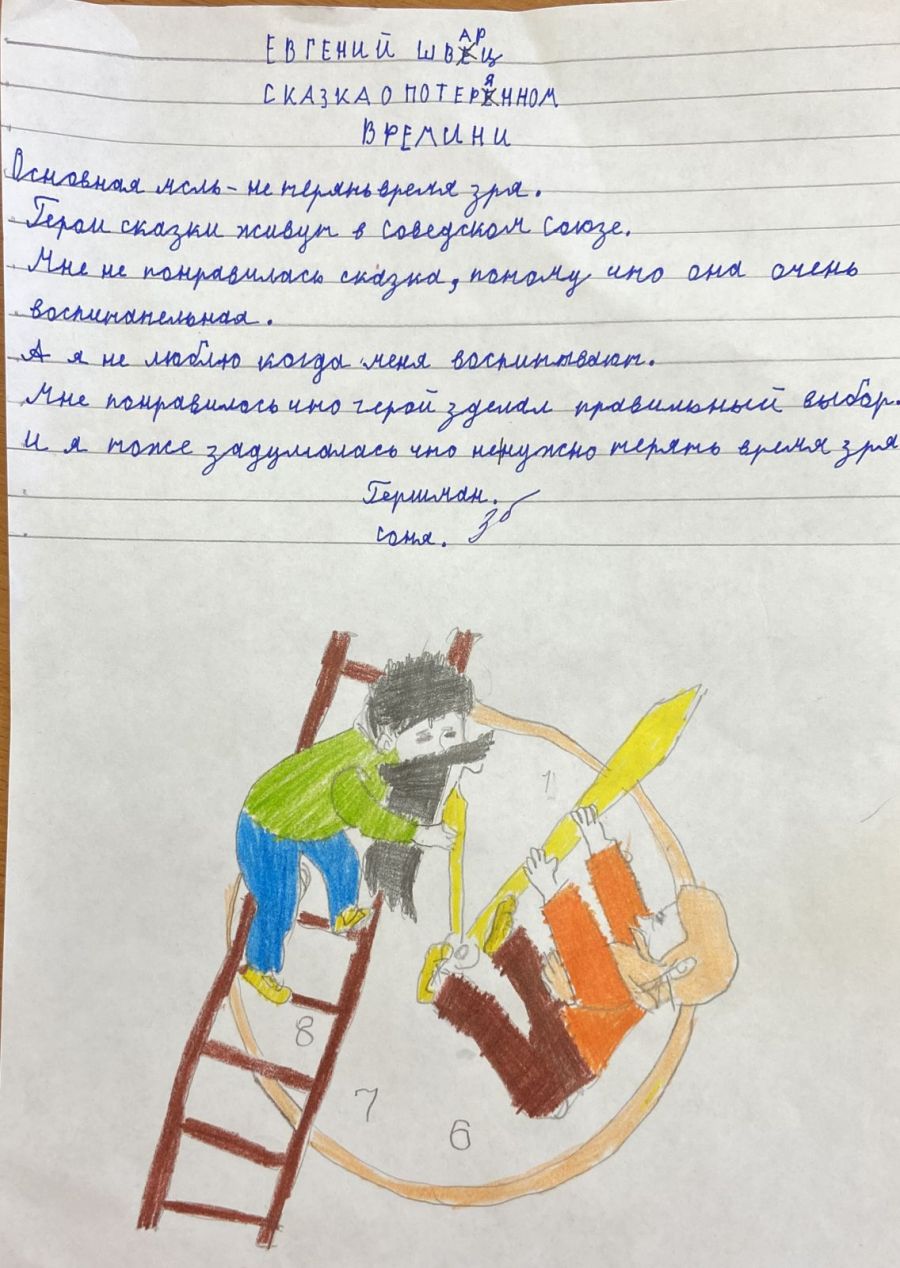 ЕВГЕНИЙ ШВАРЦ
СКАЗКА О ПОТЕРЯННОМ
ВРЕМИНИ
Основная мсль - не терянь время зря.
Герои сказки живут в Соведском Союзе.
Мне не понравилась сказка, потому что она очень
воспитательная.
А я не люблю когда меня воспитывают.
Мне понравилось что герой зделал правильный выбор.
И я тоже задумалась что ненужно терять время зря
Гершман.
Соня. 3б
1
8
7
6